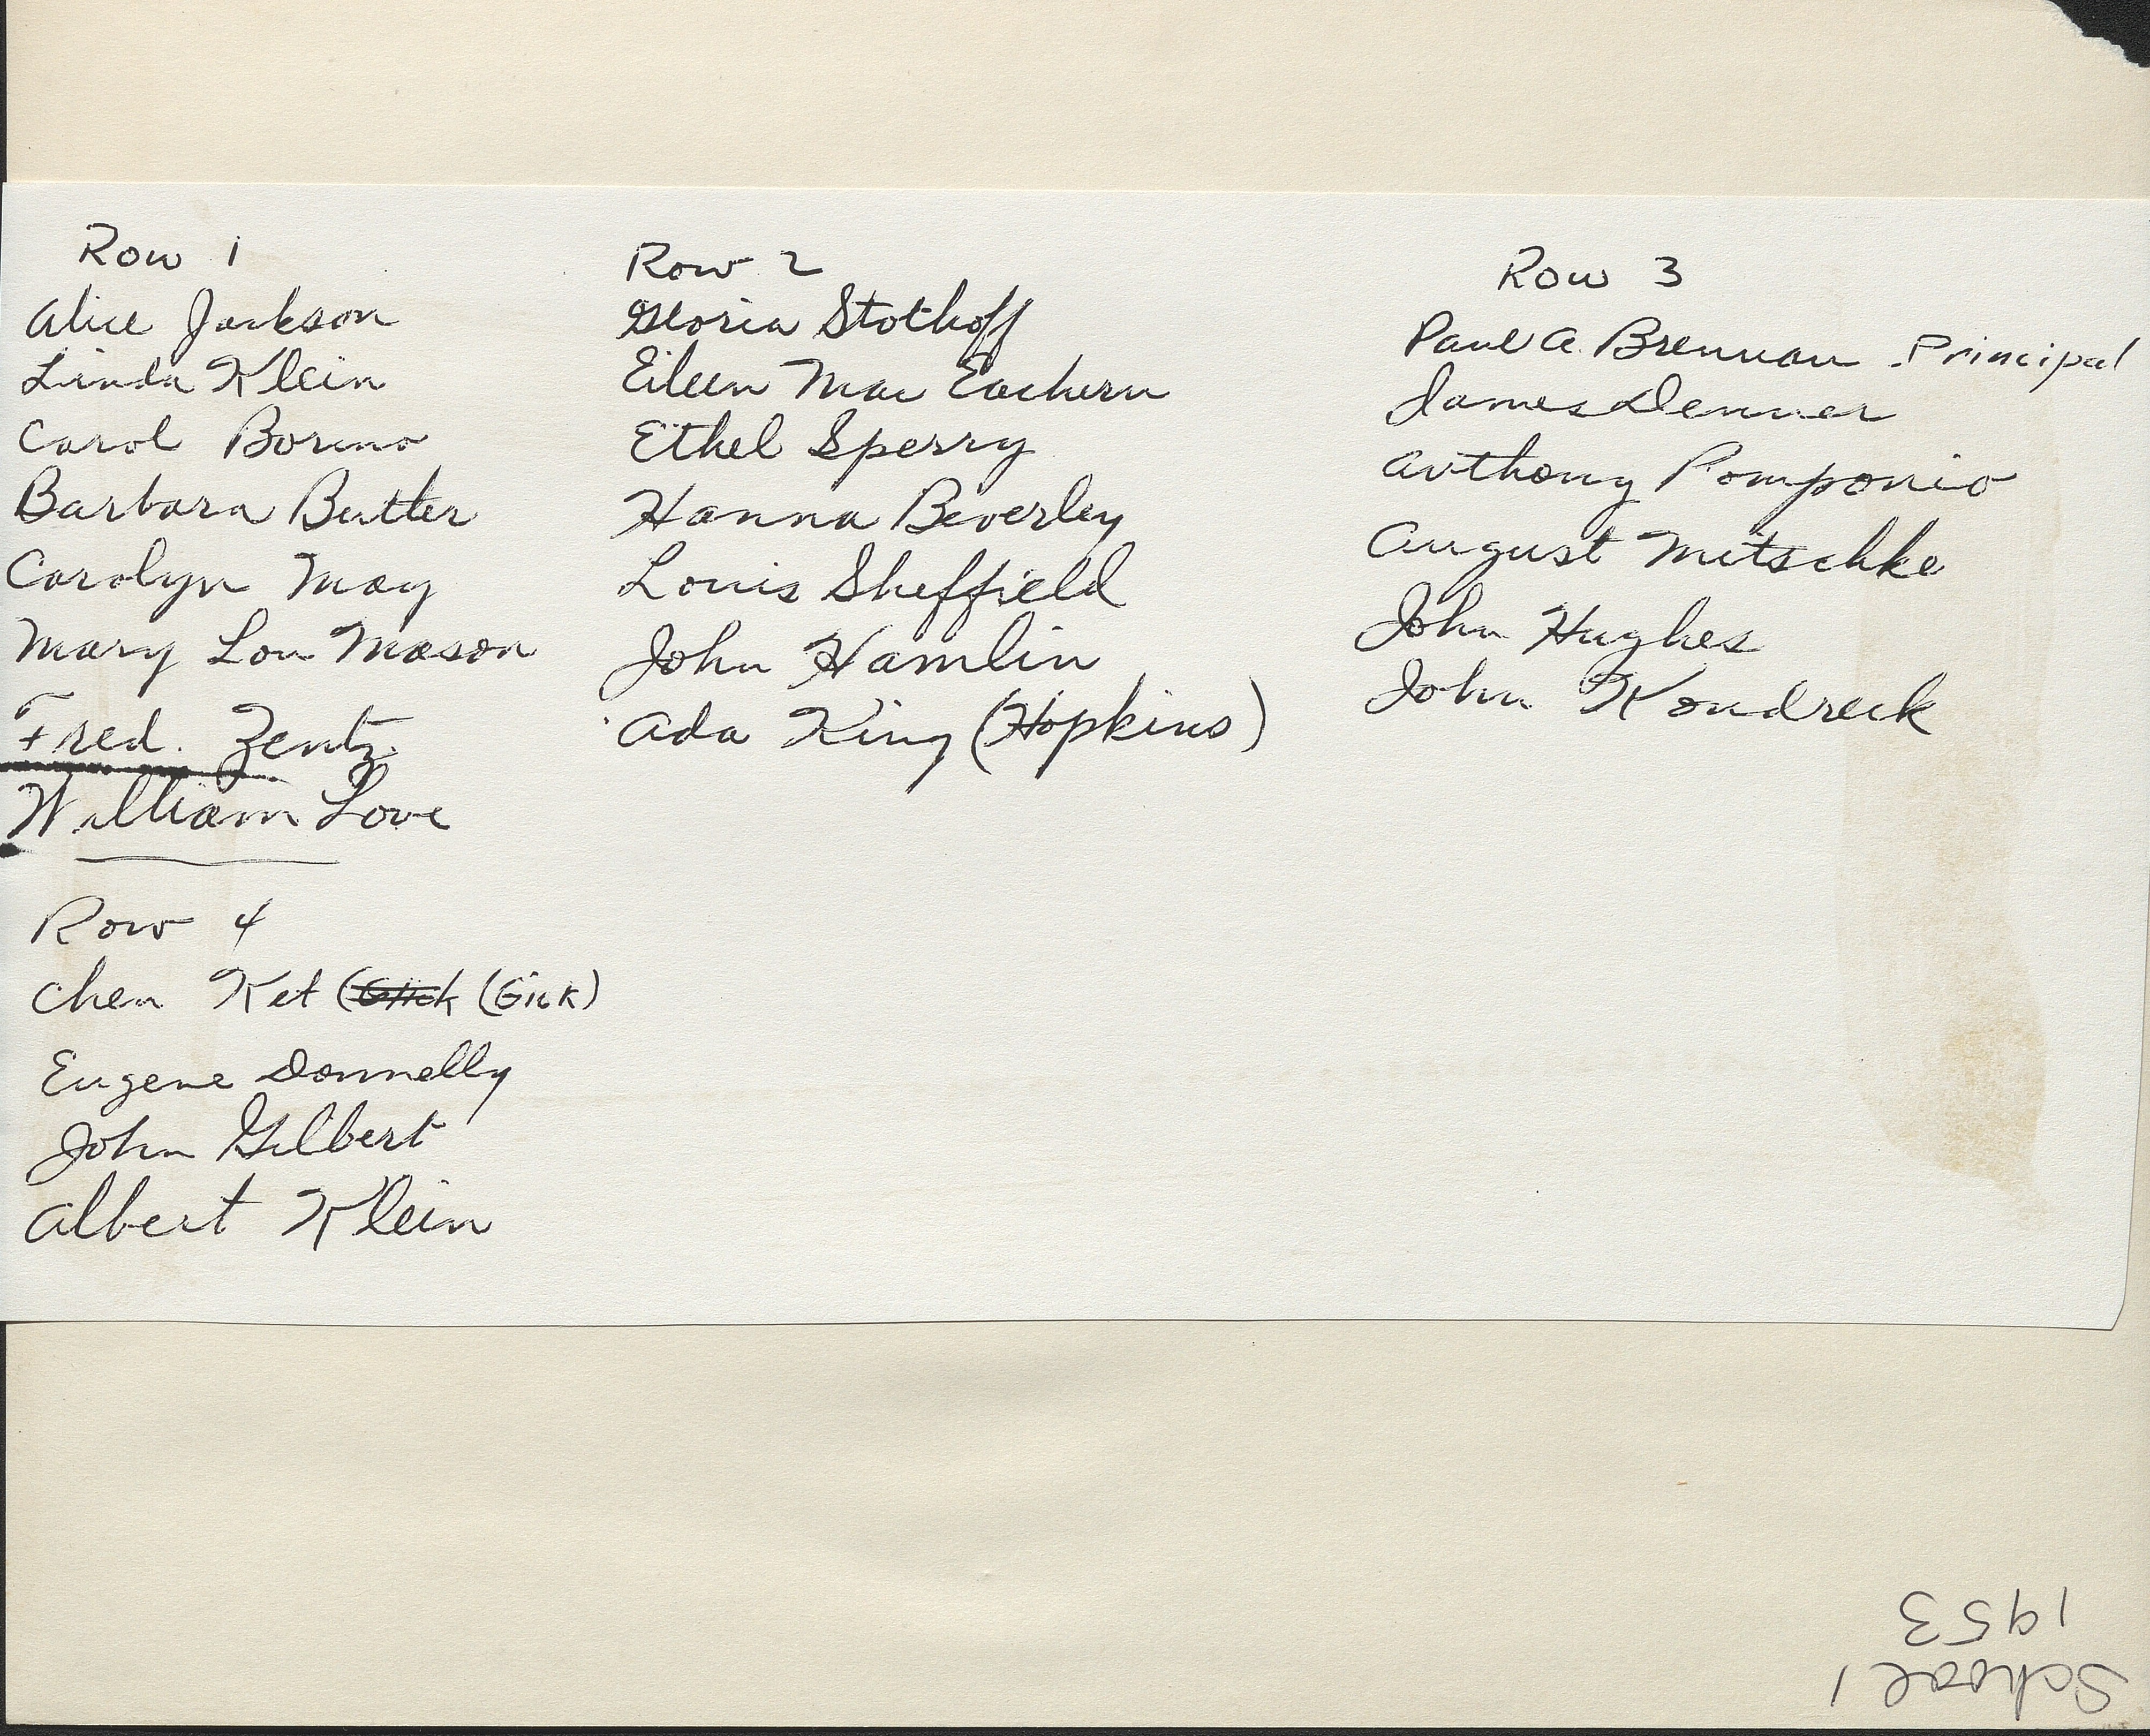 Row 1
Alice Jackson
Linda Klein
Carol Borino
Barbara Butler
Carolyn May
Mary Lou Mason
Fred. Zentz
William Love
Row 2
Gloria Stothoff
Eileen Mac Eachern
Ethel Sperry
Hanna Beverley
Louis Sheffield
John Hamlin
Ada King (Hopkins)
Row 3
Paul A. Brennan Principal
James Denner
Anthony Pomponio
August Mitschke
John Hughes
John Kondreck
Row 4
Chen Ket (Gick)
Eugene Donnelly
John Gilbert
Albert Klein
School 1
1953